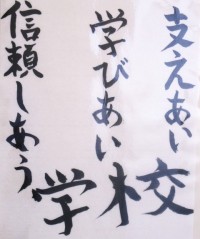 支えあい
学びあい
信頼しあう
学校